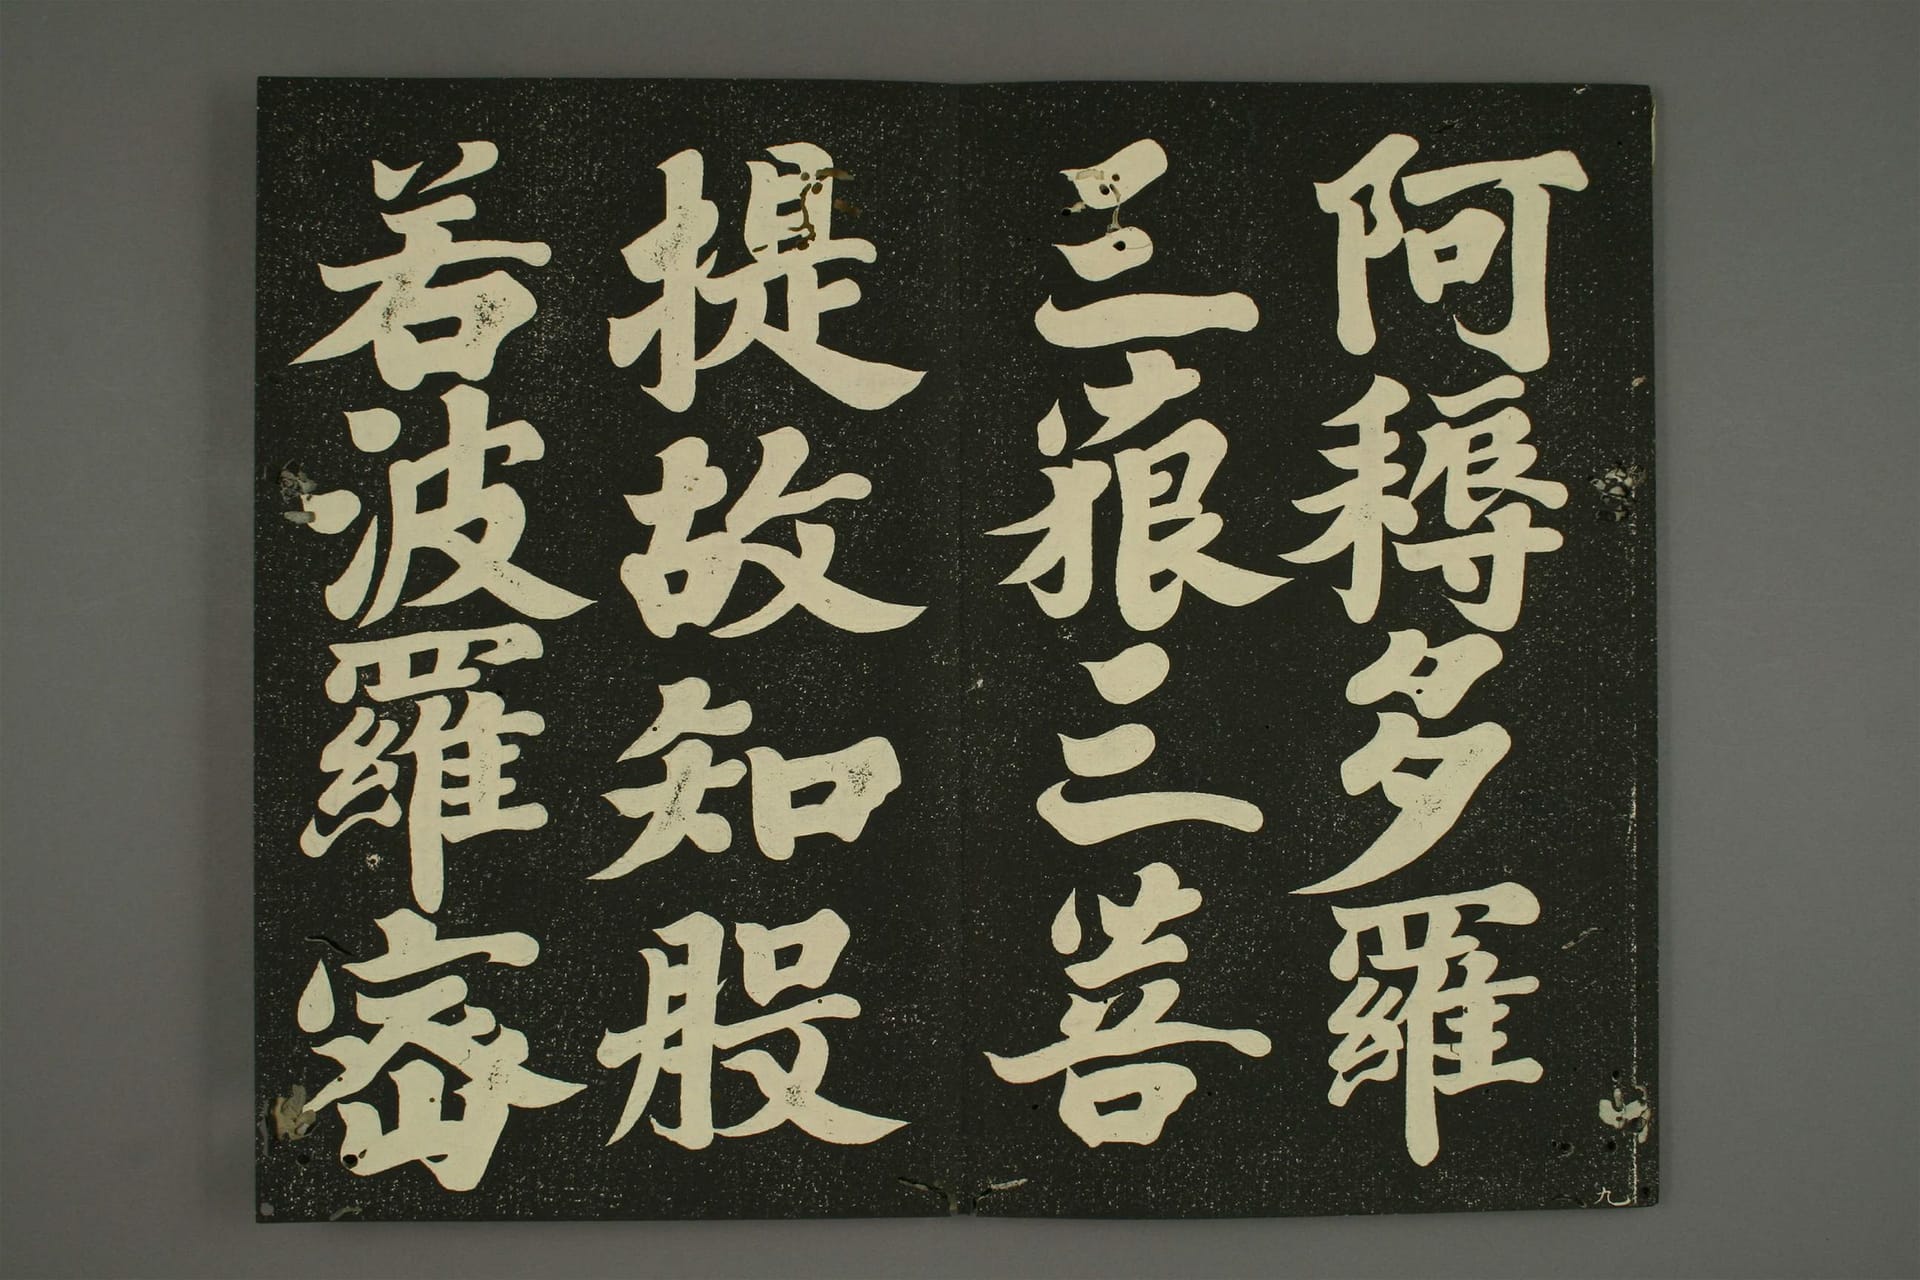 阿耨多羅
三藐三菩
提故知般
若波羅密
九